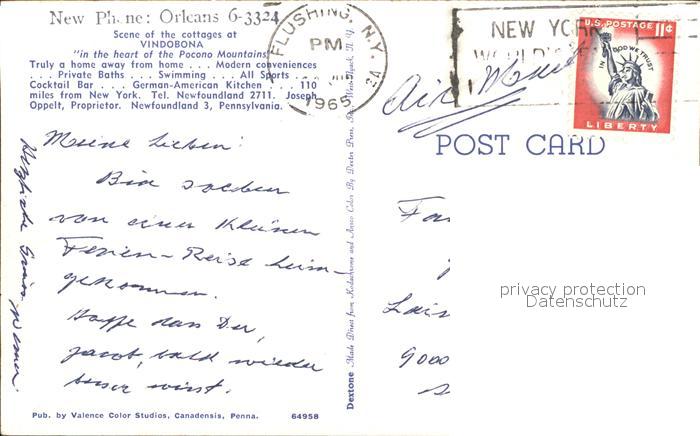 New Phone: Orleans 6-3324
Scene of the cottages at
VINDOBONA
"in the heart of the Pocono Mountains"
Truly a home away from home . . . Modern conveniences
. . . Private Baths . . . Swimming . . . All Sports . . .
Cocktail Bar . . . German-American Kitchen . . . 110
miles from New York. Tel. Newfoundland 2711. Joseph
Oppelt, Proprietor. Newfoundland 3, Pennsylvania.
FLUSHING, N.Y.
PM
1965
NEW YORK
WORLD'S
U.S. POSTAGE 11¢
IN GOD WE TRUST
LIBERTY
Air Mail
POST CARD
Meine Lieben!
Bin soeben
von einer kleinen
Ferien-Reise heim-
gekommen.
Hoffe dass Du,
Jacob, bald wieder
besser wirst.
Herzliche Grüsse
Werner
Dextone Made Direct from Kodachrome and Ansco Color By Dexter Press, Inc., West Nyack, N. Y.
Fa
9000
privacy protection
Datenschutz
Pub. by Valence Color Studios, Canadensis, Penna. 64958